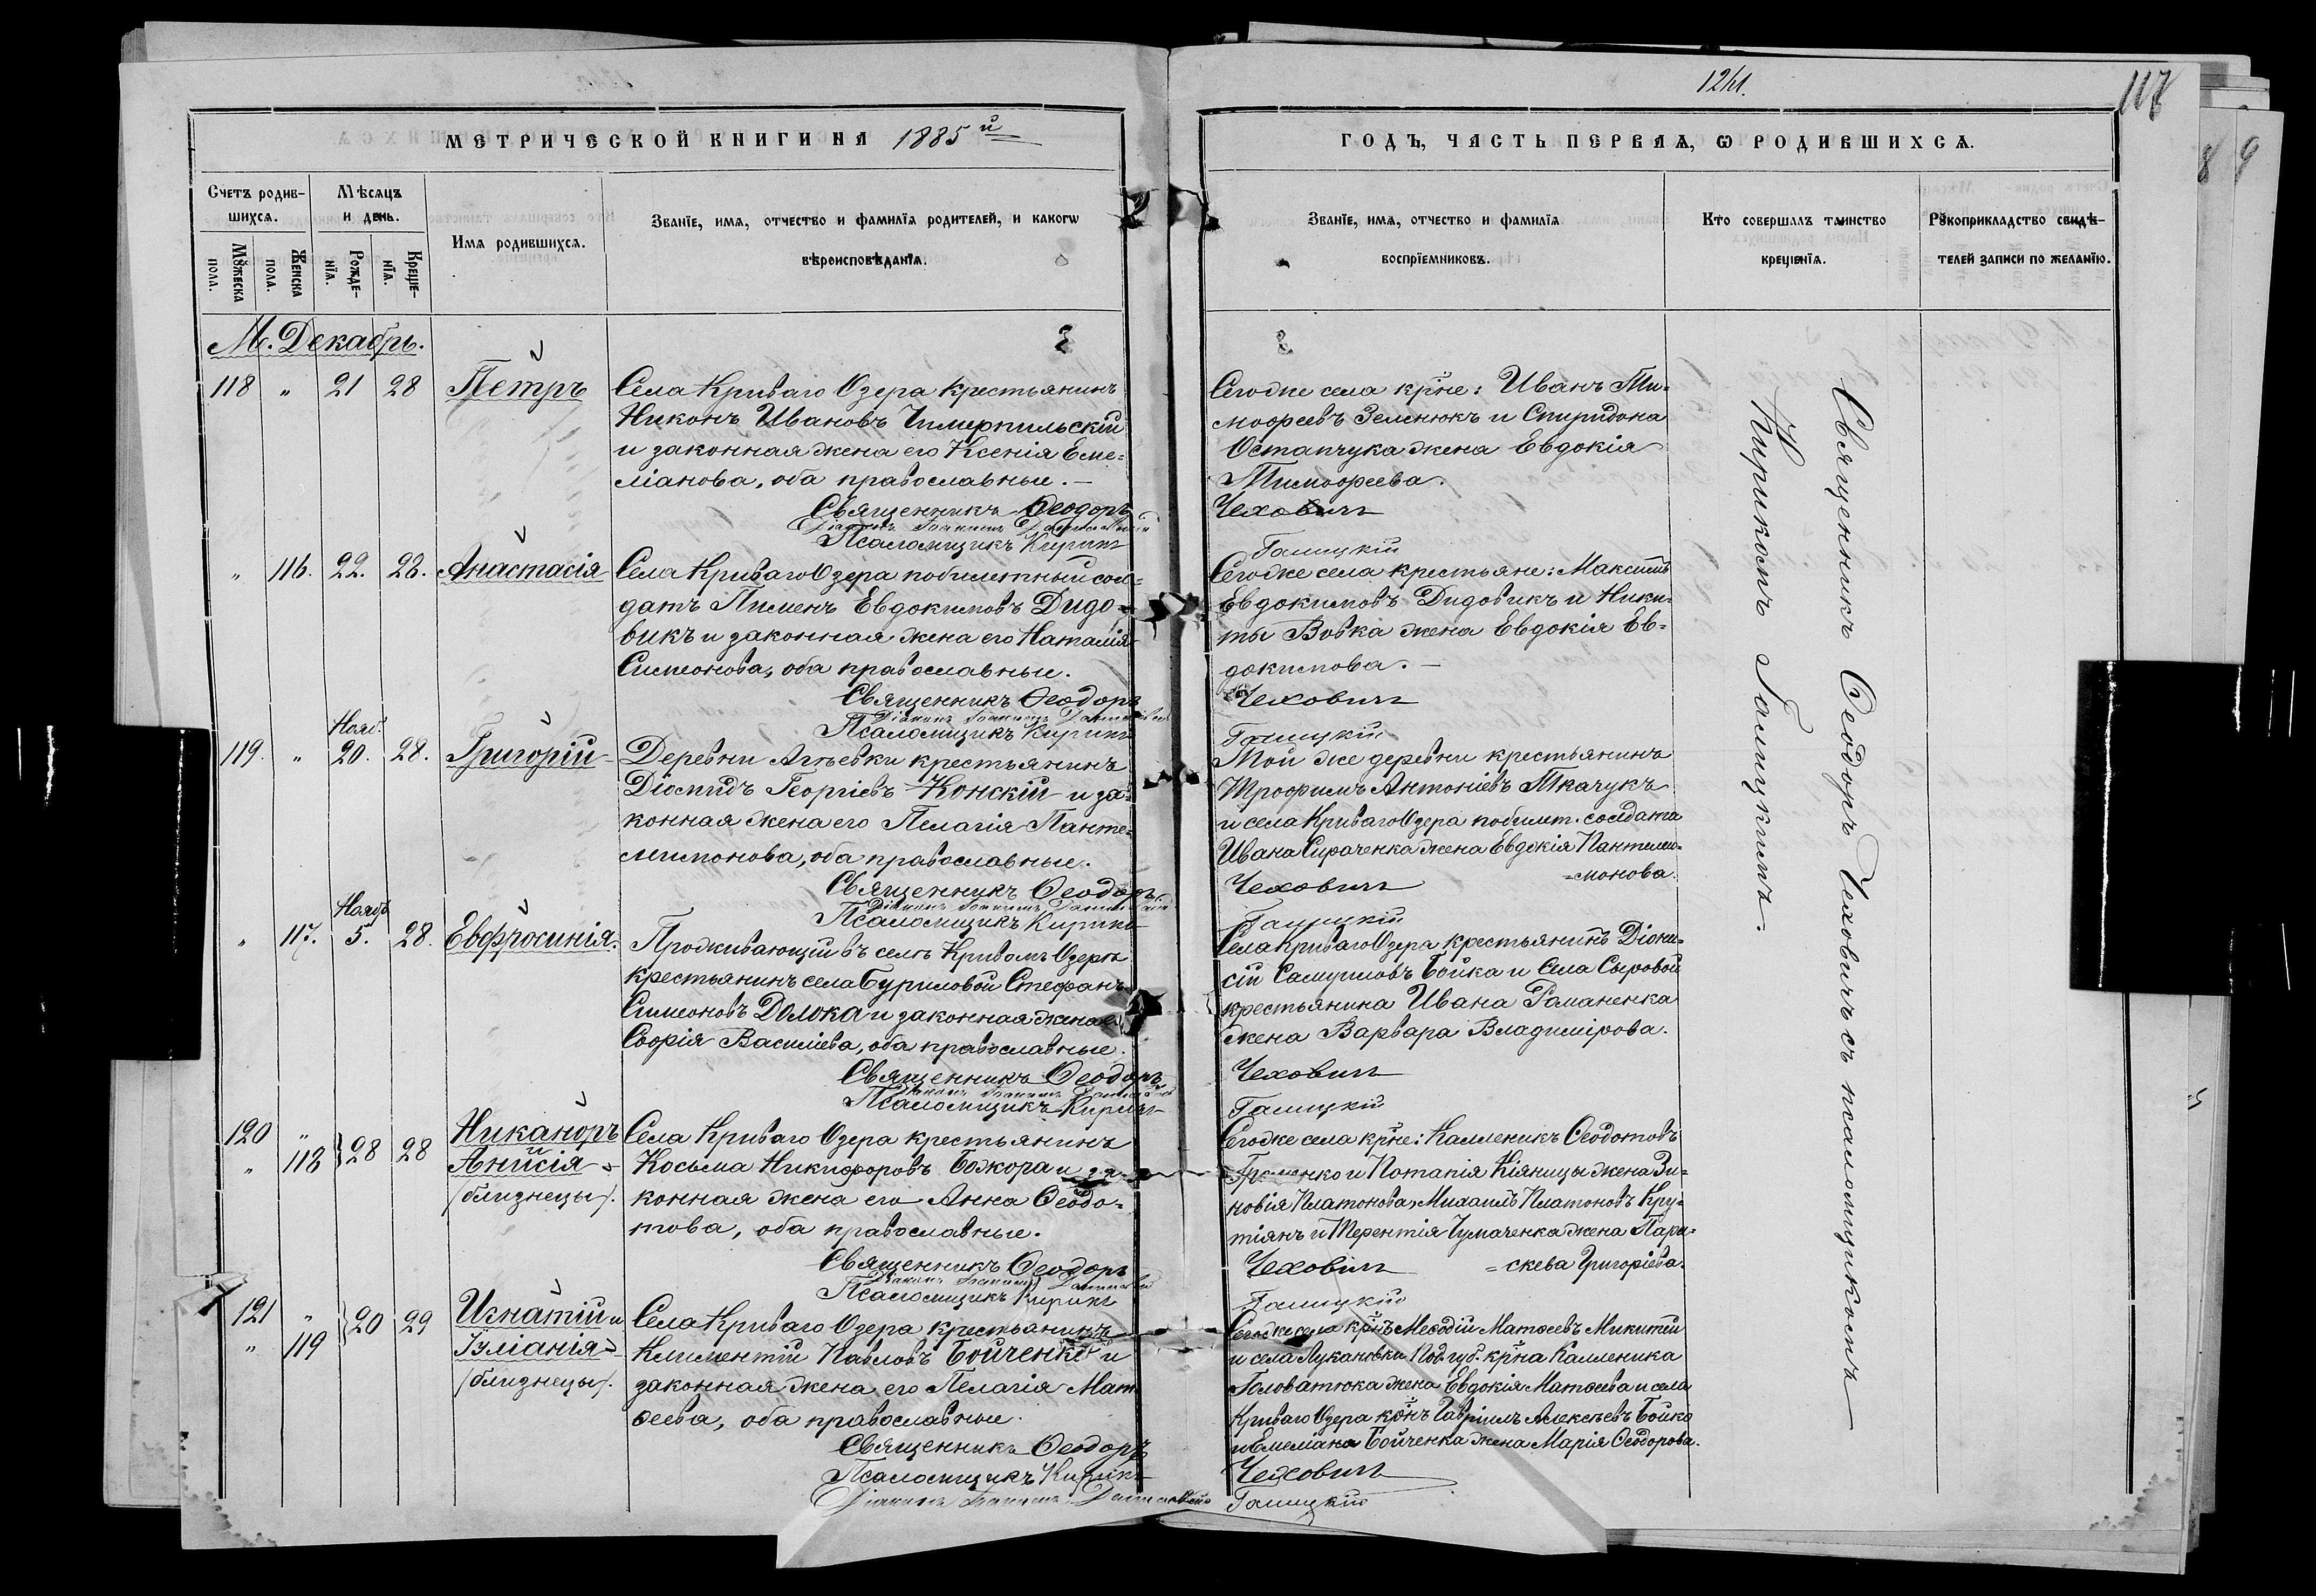 1241.
117
8 9
МЕТРИЧЕСКОЙ КНИГИ НА 1885й
ГОДЪ, ЧАСТЬ ПЕРВАѦ, Ѡ РОДИВШИХСѦ.
Счетъ родив-
шихсѧ.
Мѣсѧцъ
и день.
Мꙋжеска
пола.
Женска
пола.
Рожде-
нїѧ.
Креще-
нїѧ.
Имѧ родившихсѧ.
Званїе, имѧ, отчество и фамилїѧ родителей, и какогѡ
вѣроисповѣданїѧ.
Званїе, имѧ, отчество и фамилїѧ
воспрїемниковъ.
Кто совершалъ таинство
крещенїѧ.
Рꙋкоприкладство свидѣ-
телей записи по желанїю.
М. Декабрь.
118 " 21 28 Петръ
Села Криваго Озера крестьянинъ
Никонъ Ивановъ Чимерпильскій
и законная жена его Ксенія Еме-
ліанова, оба православные. —
Священникъ Ѳеодоръ
Псаломщикъ Кирикъ
Тогоже села кр̃не: Иванъ Ти-
моѳеевъ Зеленюкъ и Спиридона
Остапчука жена Евдокія
Тимоѳеева.
Чеховичъ
Галицкій
" 116. 22. 28. Анастасія
Села Криваго Озера побилетный сол-
датъ Пименъ Евдокимовъ Дидо-
викъ и законная жена его Наталія
Симеонова, оба православные.
Священникъ Ѳеодоръ
Псаломщикъ Кирикъ
Тогоже села крестьяне: Максимъ
Евдокимовъ Дидовикъ и Ники-
ты Вовка жена Евдокія Ев-
докимова. —
Чеховичъ
Галицкій
Нояб.
119. " 20. 28. Григорій
Деревни Агѣевки крестьянинъ
Діомидъ Георгіевъ Конскій и за-
конная жена его Пелагія Панте-
леимонова, оба православные.
Священникъ Ѳеодоръ
Псаломщикъ Кирикъ
Той же деревни крестьянинъ
Трофимъ Антоніевъ Ткачукъ
и села Криваго Озера побилет. солдата
Ивана Сираченка жена Евдокія Пантелеи-
=монова.
Чеховичъ
Галицкій
Нояб.
" 117. 5. 28. Евфросинія.
Проживающій въ селѣ Кривомъ Озерѣ
крестьянинъ села Буриловой Стефанъ
Симеоновъ Долока и законная жена
Софія Василіева, оба православные.
Священникъ Ѳеодоръ
Псаломщикъ Кирикъ
Села Криваго Озера крестьянинъ Діони-
сій Самуиловъ Бойка и Села Сыровой
крестьянина Ивана Романенка
жена Варвара Владимірова.
Чеховичъ
Галицкій
120 " Никаноръ
и
" 118 28 28 Анисія
/близнецы/.
Села Криваго Озера крестьянинъ
Косьма Никифоровъ Божора и за-
конная жена его Анна Ѳеодо-
това, оба православные.
Священникъ Ѳеодоръ
Псаломщикъ Кирикъ
Тогоже села кр̃не: Калленикъ Ѳеодотовъ
и Потапія Кіяницы жена Зи-
новія Платонова, Михаилъ Платоновъ Кру-
тіянъ и Терентія Чумаченка жена Пара-
=скева Григоріева.
Чеховичъ
Галицкій
121 " 20 29 Игнатій и
" 119 Іуліанія
/близнецы/.
Села Криваго Озера крестьянинъ
Климентій Павловъ Бойченко и
законная жена его Пелагія Мат-
ѳеева, оба православные.
Священникъ Ѳеодоръ
Псаломщикъ Кирикъ
Тогоже села кр̃нъ Меѳодій Матѳеевъ Микитей
и села Лукановки Под. губ. кр̃на Калленика
Головатюка жена Евдокія Матѳеева и села
Криваго Озера кр̃нъ Гавріилъ Алексѣевъ Бойко
и Емеліана Бойченка жена Марія Ѳеодорова.
Чеховичъ
Галицкій
Священникъ Ѳеодоръ Чеховичъ съ псаломщикомъ
Кирикомъ Галицкимъ.